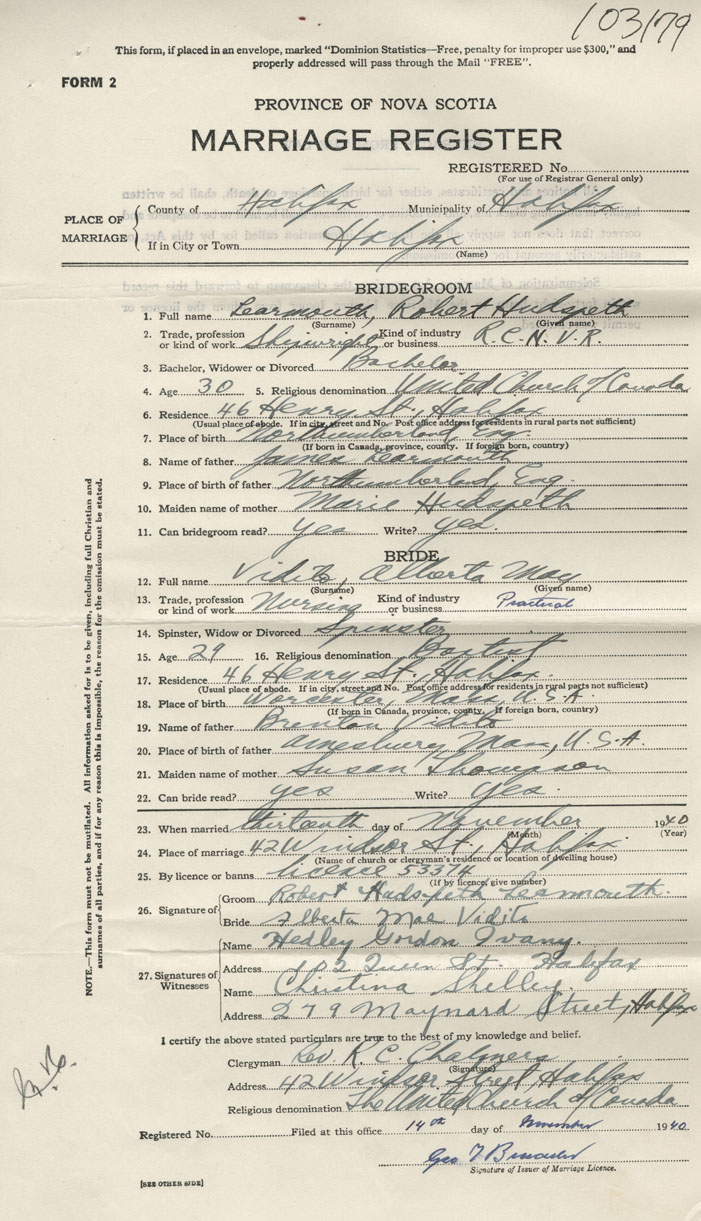 103179
This form, if placed in an envelope, marked "Dominion Statistics—Free, penalty for improper use $300," and
properly addressed will pass through the Mail "FREE".
FORM 2
PROVINCE OF NOVA SCOTIA
MARRIAGE REGISTER
REGISTERED No.
(For use of Registrar General only)
PLACE OF MARRIAGE
County of Halifax Municipality of Halifax
If in City or Town Halifax
(Name)
BRIDEGROOM
1. Full name Learmouth, Robert Hudspeth
(Surname) (Given name)
2. Trade, profession or kind of work Shipwright Kind of industry or business R.C.N.V.R.
3. Bachelor, Widower or Divorced Bachelor
4. Age 30 5. Religious denomination United Church of Canada
6. Residence 46 Henry St., Halifax
(Usual place of abode. If in city, street and No. Post office address for residents in rural parts not sufficient)
7. Place of birth Northumberland, Eng.
(If born in Canada, province, county. If foreign born, country)
8. Name of father James Learmouth
9. Place of birth of father Northumberland, Eng.
10. Maiden name of mother Marie Hudspeth
11. Can bridegroom read? yes Write? yes.
BRIDE
12. Full name Vidito, Alberta May
(Surname) (Given name)
13. Trade, profession or kind of work Nursing Kind of industry or business Practical
14. Spinster, Widow or Divorced Spinster
15. Age 29 16. Religious denomination Baptist
17. Residence 46 Henry St., Halifax.
(Usual place of abode. If in city, street and No. Post office address for residents in rural parts not sufficient)
18. Place of birth Worcester, Mass, U.S.A
(If born in Canada, province, county. If foreign born, country)
19. Name of father Brenton Vidito
20. Place of birth of father Amesbury Mass, U.S.A.
21. Maiden name of mother Susan Thompson
22. Can bride read? yes Write? yes.
23. When married thirteenth day of November 1940
(Month) (Year)
24. Place of marriage 42 Windsor St., Halifax
(Name of church or clergyman's residence or location of dwelling house)
25. By licence or banns licence 53374
(If by licence, give number)
26. Signature of
Groom Robert Hudspeth Learmouth.
Bride Alberta Mae Vidito
27. Signatures of Witnesses
Name Hedley Gordon Ivany.
Address 102 Queen St. Halifax
Name Christina Shelley.
Address 279 Maynard Street, Halifax
I certify the above stated particulars are true to the best of my knowledge and belief.
Clergyman Rev. R. C. Chalmers
(Signature)
Address 42 Windsor Street Halifax
Religious denomination The United Church of Canada
Registered No. Filed at this office 14th day of November 1940.
Signature of Issuer of Marriage Licence.
[SEE OTHER SIDE]
NOTE.—This form must not be mutilated. All information asked for is to be given, including full Christian and
surnames of all parties, and if for any reason this is impossible, the reason for the omission must be stated.